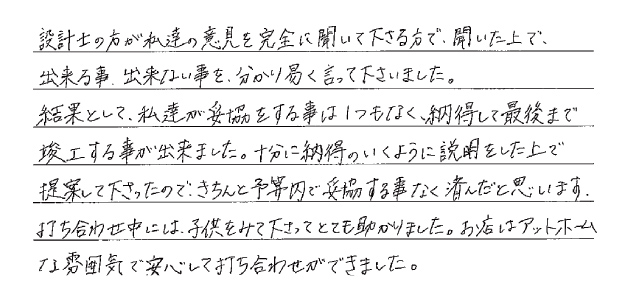 設計士の方が私達の意見を完全に聞いて下さる方で、聞いた上で、
出来る事、出来ない事を、分かり易く言って下さいました。
結果として、私達が妥協をする事は1つもなく、納得して最後まで
竣工する事が出来ました。十分に納得のいくように説明をした上で
提案して下さったので、きちんと予算内で妥協する事なく済んだと思います。
打ち合わせ中には、子供をみて下さってとても助かりました。お店はアットホーム
な雰囲気で安心して打ち合わせができました。